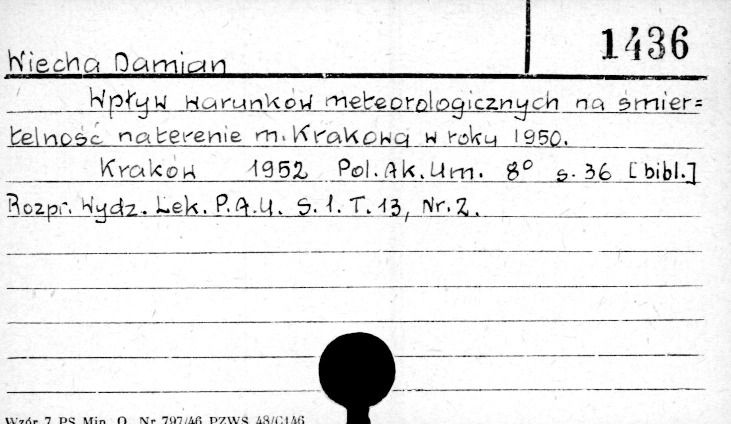 1436
Wiecha Damian
Wpływ warunków meteorologicznych na śmier=
telność na terenie m. Krakowa w roku 1950.
Kraków 1952 Pol. Ak. Um. 8° s. 36 [bibl.]
Rozpr. Wydz. Lek. P.A.U. S. 1. T. 13, Nr. 2.
Wzór 7 PS Min. O. Nr 797/46 PZWS 48/G146